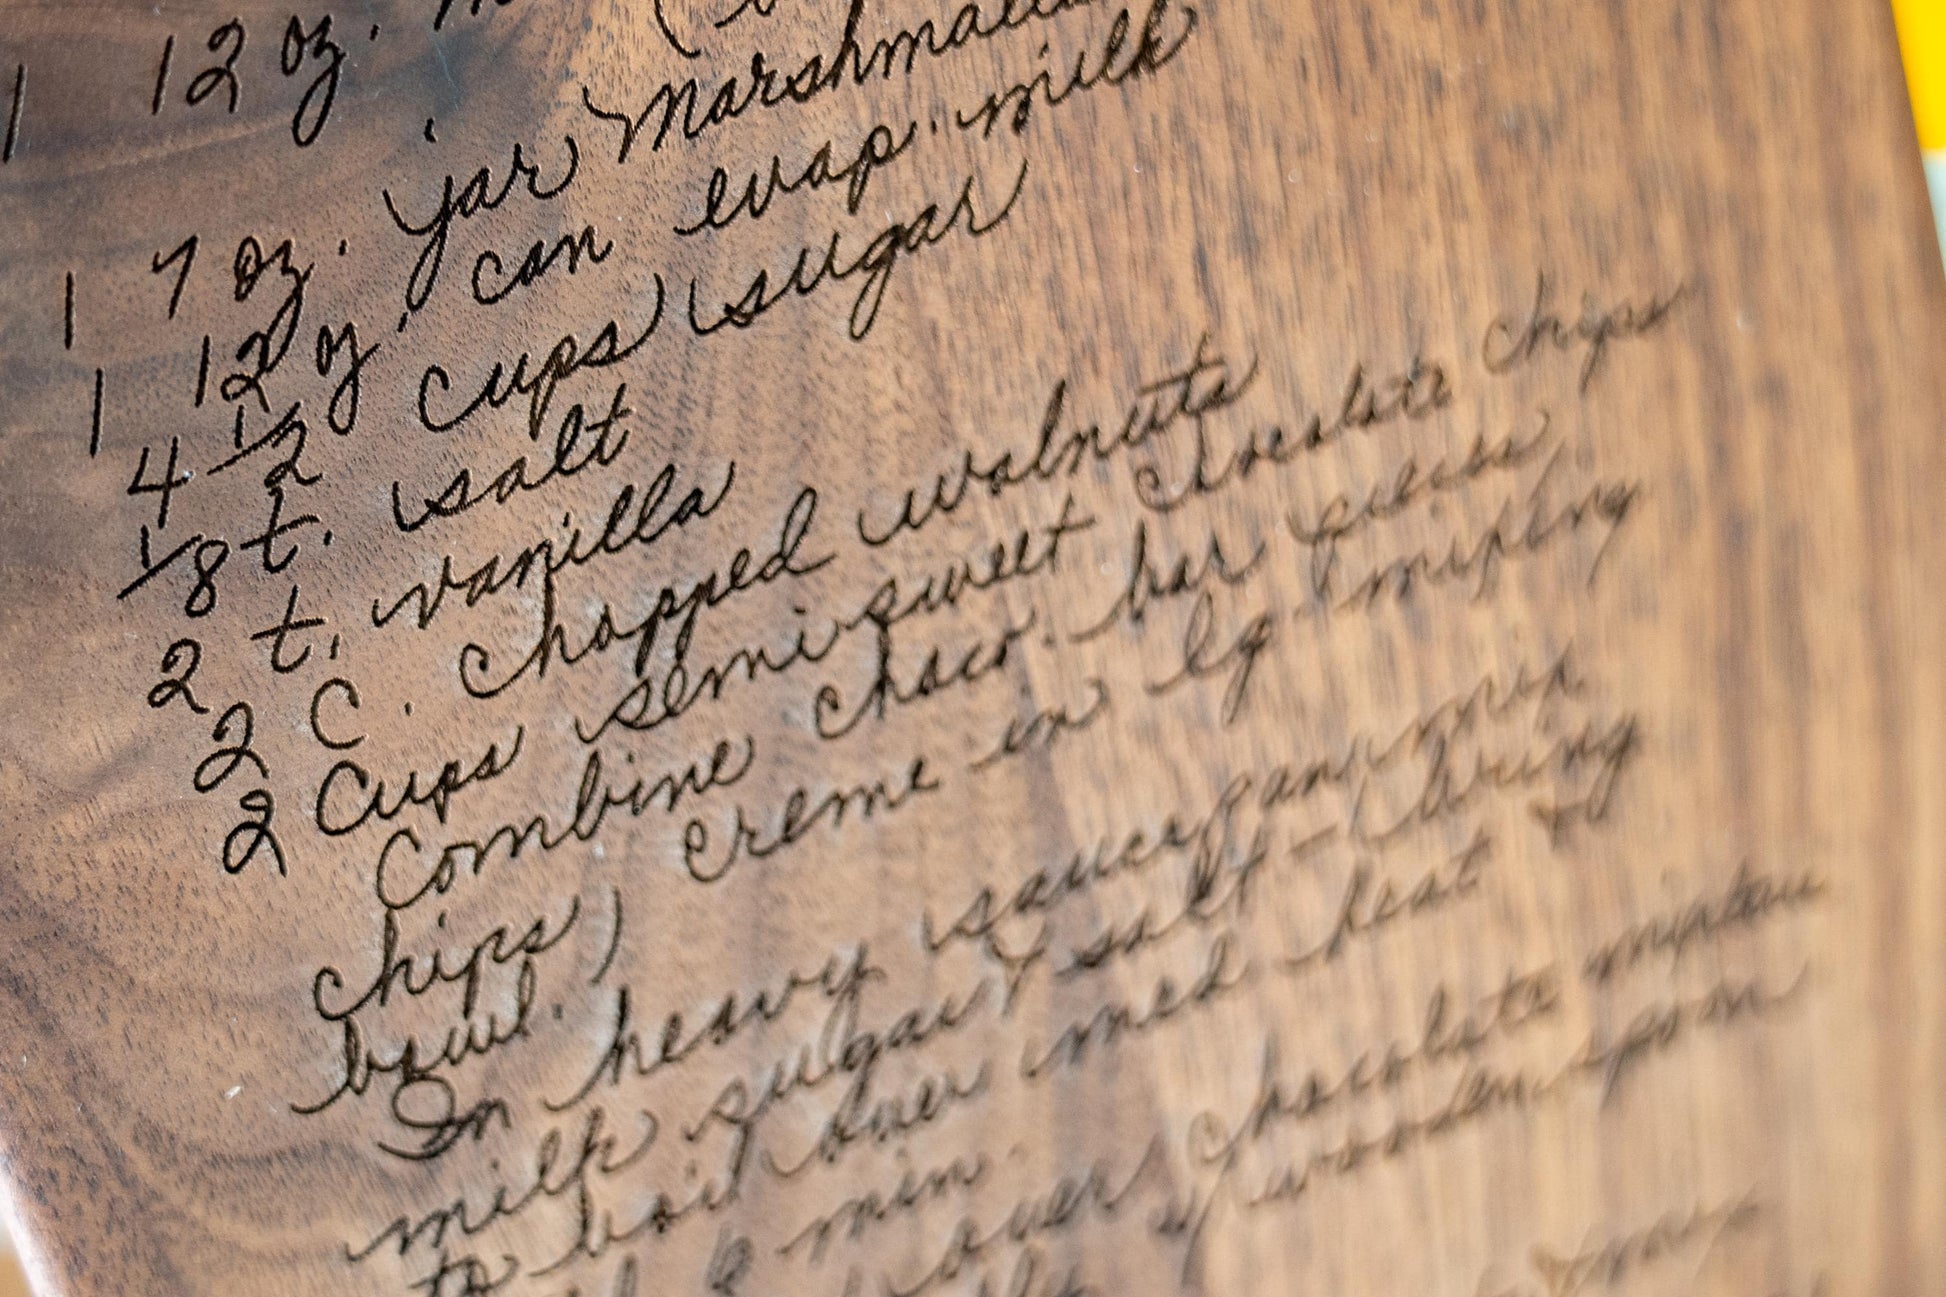 1 12 oz.
1 7 oz. jar Marshmallow
1 12 oz. can evap. milk
4 1/2 cups sugar
1/8 t. salt
2 t. vanilla
2 C. chopped walnuts
2 Cups semi sweet chocolate chips
Combine choco. bar pieces,
chips, creme in lg mixing
bowl.
In heavy saucepan mix
milk sugar & salt - bring
to boil over med heat &
min.
over chocolate mixture
w/ wooden spoon